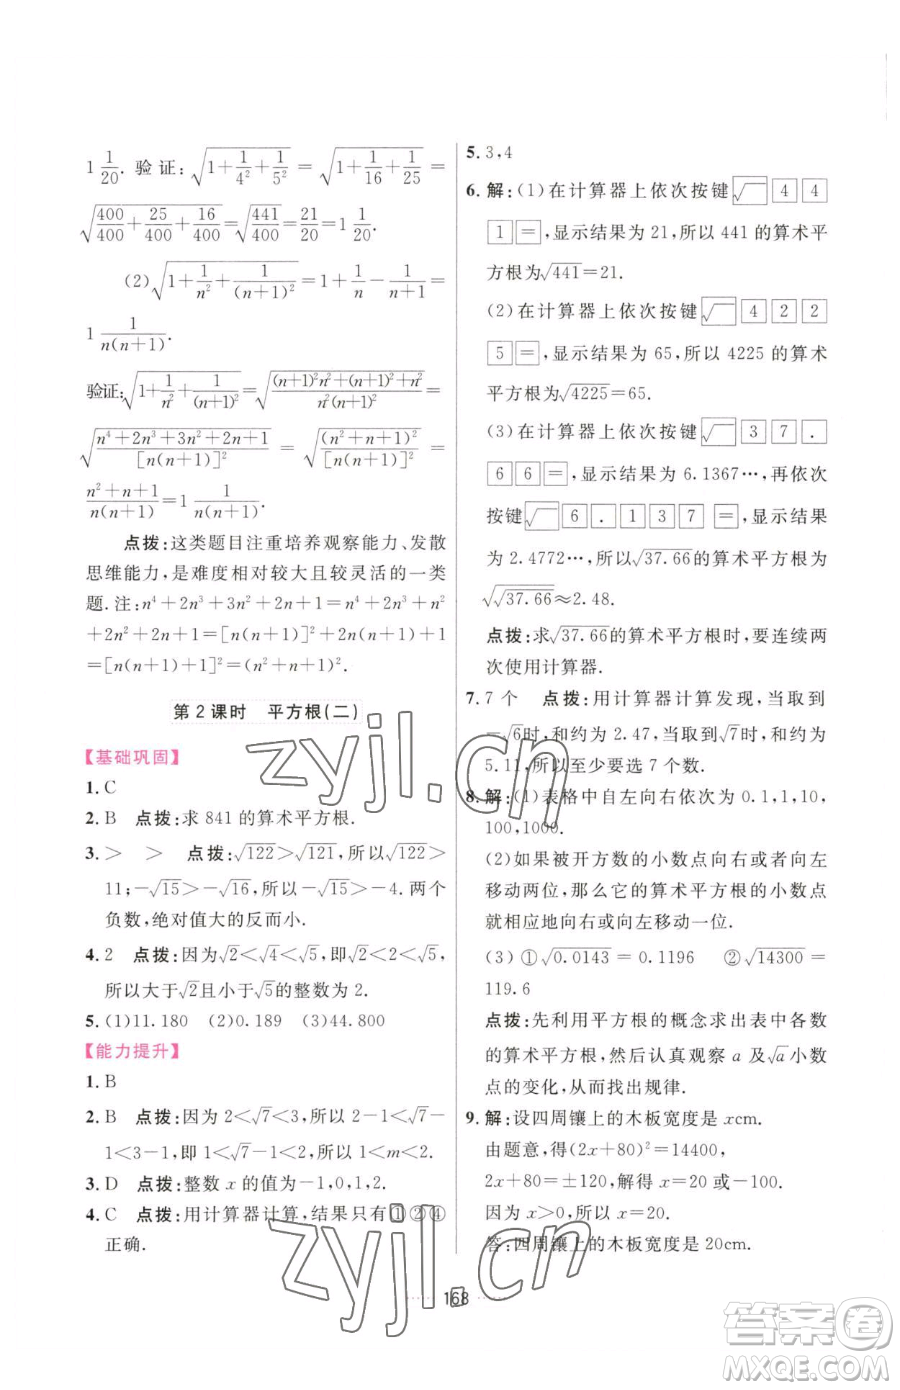 1 1/20. 验证: √(1+1/4²+1/5²) = √(1+1/16+1/25) =
√(400/400+25/400+16/400) = √(441/400) = 21/20 = 1 1/20.
(2)√(1+1/n²+1/(n+1)²) = 1+1/n−1/(n+1) =
1 1/(n(n+1)).
验证: √(1+1/n²+1/(n+1)²) = √(((n+1)²n²+(n+1)²+n²)/(n²(n+1)²)) =
√((n⁴+2n³+3n²+2n+1)/[n(n+1)]²) = √((n²+n+1)²/[n(n+1)]²) =
(n²+n+1)/(n(n+1)) = 1 1/(n(n+1)).
点拨:这类题目注重培养观察能力、发散
思维能力,是难度相对较大且较灵活的一类
题.注:n⁴+2n³+3n²+2n+1=n⁴+2n³+n²
+2n²+2n+1=[n(n+1)]²+2n(n+1)+1
=[n(n+1)+1]²=(n²+n+1)².
第2课时 平方根(二)
【基础巩固】
1. C
2. B 点拨:求 841 的算术平方根.
3. > > 点拨:√122>√121,所以√122>
11;−√15>−√16,所以−√15>−4.两个
负数,绝对值大的反而小.
4. 2 点拨:因为√2<√4<√5,即√2<2<√5,
所以大于√2且小于√5的整数为 2.
5. (1)11.180 (2)0.189 (3)44.800
【能力提升】
1. B
2. B 点拨:因为 2<√7<3,所以 2−1<√7−
1<3−1,即 1<√7−1<2,所以 1<m<2.
3. D 点拨:整数 x 的值为−1,0,1,2.
4. C 点拨:用计算器计算,结果只有①②④
正确.
5. 3,4
6. 解:(1)在计算器上依次按键 √ 4 4
1 =,显示结果为 21,所以 441 的算术平
方根为√441=21.
(2)在计算器上依次按键 √ 4 2 2
5 =,显示结果为 65,所以 4225 的算术
平方根为√4225=65.
(3)在计算器上依次按键 √ 3 7 .
6 6 =,显示结果为 6.1367…,再依次
按键 √ 6 . 1 3 7 =,显示结果
为 2.4772…,所以√37.66的算术平方根为
√√37.66≈2.48.
点拨:求√37.66的算术平方根时,要连续两
次使用计算器.
7. 7 个 点拨:用计算器计算发现,当取到
−√6时,和约为 2.47,当取到√7时,和约为
5.11,所以至少要选 7 个数.
8. 解:(1)表格中自左向右依次为 0.1,1,10,
100,1000.
(2)如果被开方数的小数点向右或者向左
移动两位,那么它的算术平方根的小数点
就相应地向右或向左移动一位.
(3)①√0.0143=0.1196 ②√14300=
119.6
点拨:先利用平方根的概念求出表中各数
的算术平方根,然后认真观察 a 及√a小数
点的变化,从而找出规律.
9. 解:设四周镶上的木板宽度是 xcm.
由题意,得(2x+80)²=14400,
2x+80=±120,解得 x=20 或−100.
因为 x>0,所以 x=20.
答:四周镶上的木板宽度是 20cm.
168
zyjl.cn
zyjl.cn
答案卷
MXQE.COM